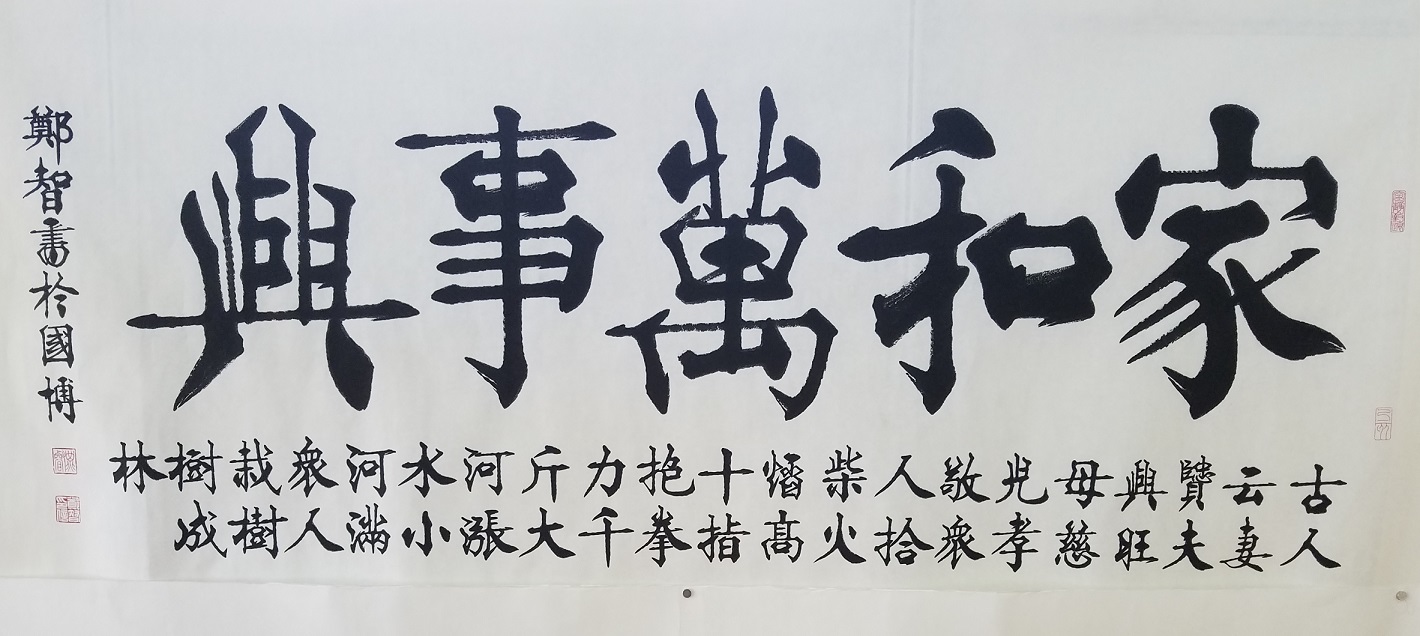 家和萬事興
古人
云妻
賢夫
興旺
母慈
兒孝
敬衆
人拾
柴火
熖高
十指
抱拳
力千
斤大
河漲
水小
河滿
衆人
栽樹
樹成
林
鄭智書於國博